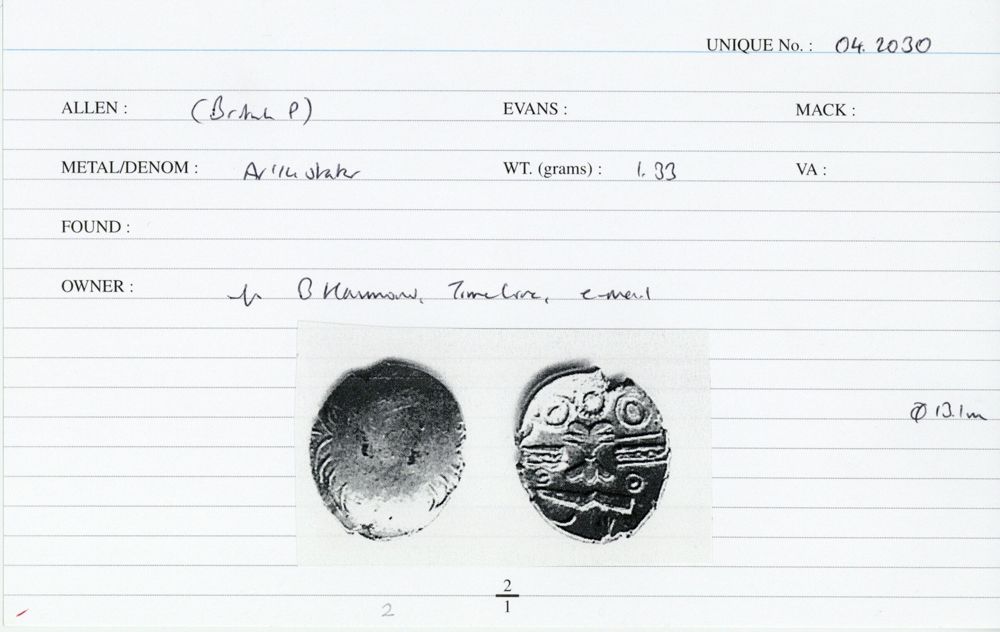 UNIQUE No. : 04. 2030
ALLEN : (British P) EVANS : MACK :
METAL/DENOM : 1/4 stater WT. (grams) : 1.33 VA :
FOUND :
OWNER : B Hammond, Timeline, e-mail
Ø 13.1m
2
1
2